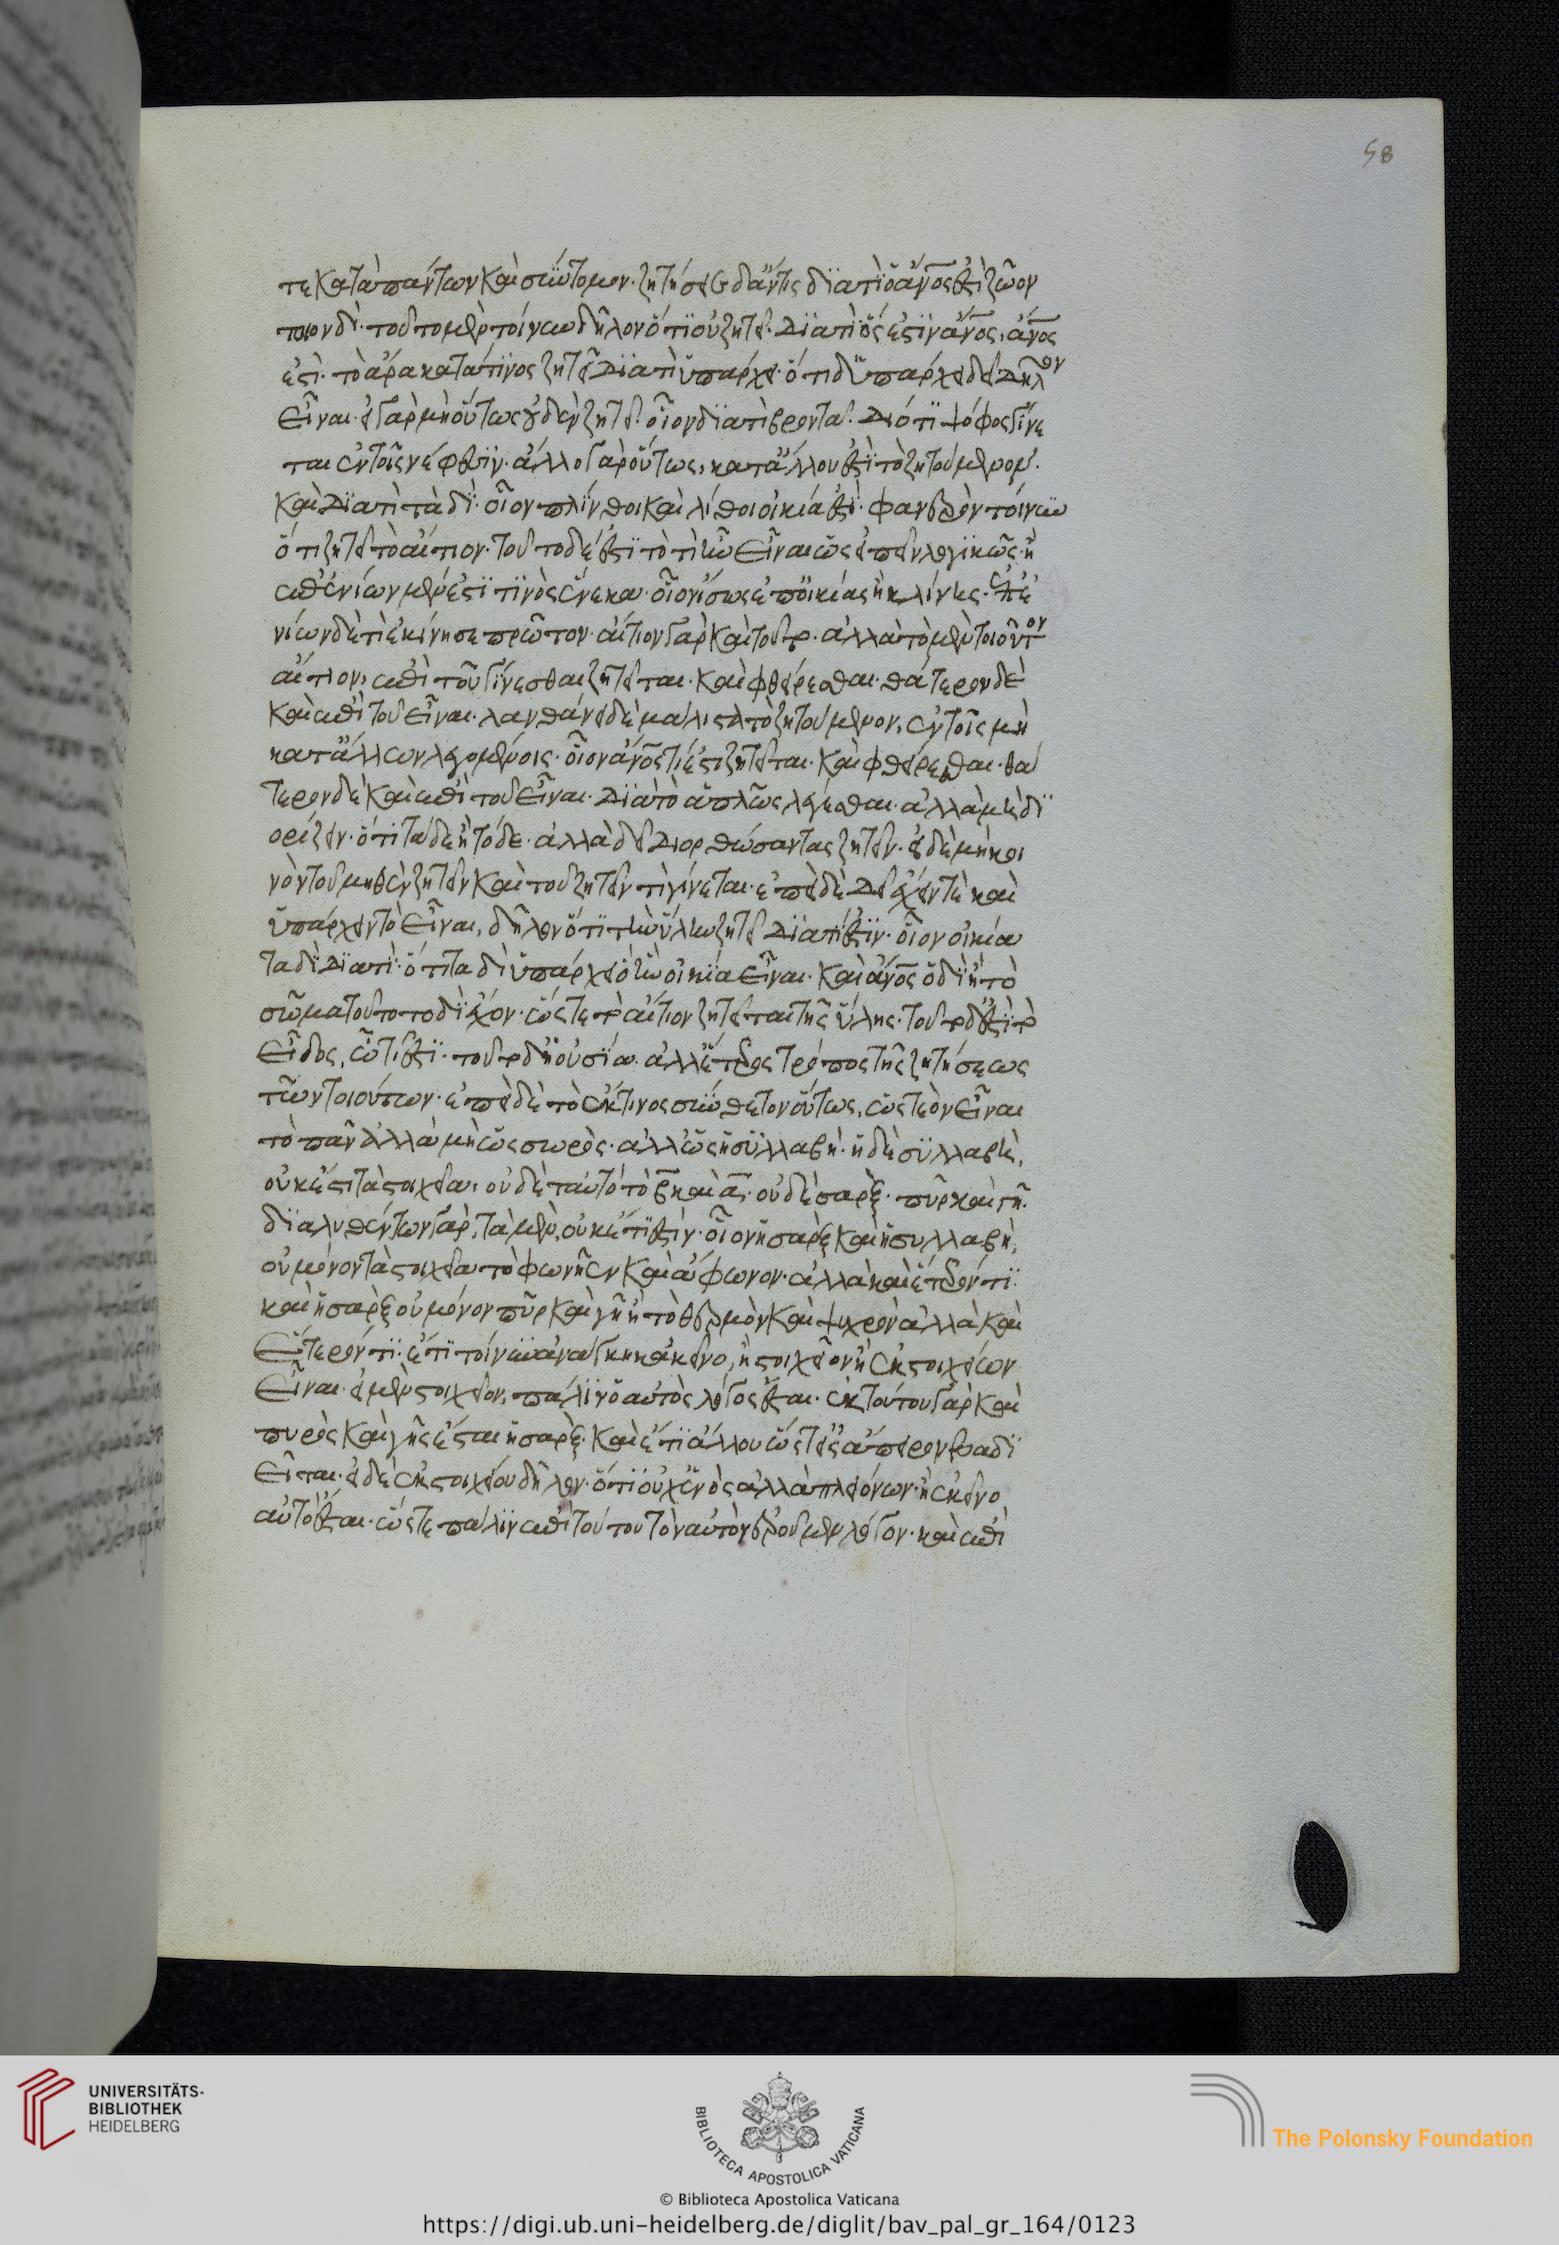 τε κατὰ πάντων καὶ σύντομον· ζητήσειε δ' ἄν τις διατί ὁ ἄνος ἐστὶ ζῶον
τοιονδί· τοῦτο μὲν τοίνυν δῆλον ὅτι οὐ ζητεῖ· διατί ὅς ἐστϊν ἄνος, ἄνος
ἐστί· τὸ ἄρα κατά τινος ζητεῖ διατί ὑπάρχει· ὅτι δ' ὑπάρχει δεῖ δῆλον
εἶναι· εἰ γὰρ μὴ οὕτως οὐδὲν ζητεῖ· οἷον διατί βροντᾶ· διότι ψόφος γίνε
ται ἐν τοῖς νέφεσιν· ἄλλο γὰρ οὕτως, κατ' ἄλλου ἐστὶ τὸ ζητούμενον·
καὶ διατί ταδί· οἷον πλίνθοι καὶ λίθοι οἰκία ἐστί· φανερὸν τοίνυν
ὅτι ζητεῖ τὸ αἴτιον· τοῦτο δέ ἐστι τὸ τί ἦν εἶναι ὡς εἰπεῖν λογικῶς· ἢ
ἐπ' ἐνίων μέν ἐστι τίνος ἕνεκα· οἷον ἴσως ἐπ' οἰκίας ἢ κλίνης· ἐπ' ἐ
νίων δὲ τί ἐκίνησε πρῶτον· αἴτιον γὰρ καὶ τοῦτο· ἀλλὰ τὸ μὲν τοιοῦτον
αἴτιον, ἐπὶ τοῦ γίνεσθαι ζητεῖται· καὶ φθείρεσθαι· θάτερον δὲ
καὶ ἐπὶ τοῦ εἶναι· λανθάνει δὲ μάλιστα τὸ ζητούμενον, ἐν τοῖς μὴ
κατ' ἄλλων λεγομένοις· οἷον ἄνος τί ἐστι ζητεῖται· καὶ φθείρεσθαι· θά
τερον δὲ καὶ ἐπὶ τοῦ εἶναι· διὰ τὸ ἁπλῶς λέγεσθαι· ἀλλὰ μὴ δι
ορίζειν· ὅτι τάδε ἢ τόδε· ἀλλὰ δεῖ διορθώσαντας ζητεῖν· εἰ δὲ μὴ κοι
νὸν τοῦ μηθὲν ζητεῖν καὶ τοῦ ζητεῖν τι γίνεται· ἐπεὶ δὲ δεῖ ἔχειν τε καὶ
ὑπάρχειν τὸ εἶναι, δῆλον ὅτι τὴν ὕλην ζητεῖ διατί ἐστιν· οἷον οἰκία
ταδὶ διατί· ὅτι ταδὶ ὑπάρχει ὃ ἦν οἰκία εἶναι· καὶ ἄνος ὁδὶ ἢ τὸ
σῶμα τοῦτο τοδὶ ἔχον· ὥστε τὸ αἴτιον ζητεῖται τῆς ὕλης· τοῦτο δ' ἐστὶ τὸ
εἶδος, ᾧ τί ἐστι· τοῦτο δ' ἡ οὐσία ἀλλ' ἕτερος τρόπος τῆς ζητήσεως
τῶν τοιούτων· ἐπεὶ δὲ τὸ ἔκ τινος σύνθετον οὕτως, ὥστε ἓν εἶναι
τὸ πᾶν ἀλλὰ μὴ ὡς σωρὸς· ἀλλ' ὡς ἡ συλλαβή· ἡ δὲ συλλαβὴ,
οὐκ ἔστι τὰ στοιχεῖα, οὐδὲ ταὐτὸ τὸ β καὶ α· οὐδὲ σὰρξ· πῦρ καὶ γῆ·
διαλυθέντων γὰρ, τὰ μὲν, οὐκέτι ἐστίν· οἷον ἡ σὰρξ καὶ ἡ συλλαβὴ,
οὐ μόνον τὰ στοιχεῖα τὸ φωνῆεν καὶ ἄφωνον· ἀλλὰ καὶ ἕτερόν τι·
καὶ ἡ σὰρξ οὐ μόνον πῦρ καὶ γῆ ἢ τὸ θερμὸν καὶ ψυχρὸν ἀλλὰ καὶ
ἕτερόν τι· εἴ τι τοίνυν ἀνάγκη κἀκεῖνο, ἢ στοιχεῖον ἢ ἐκ στοιχείων
εἶναι· εἰ μὲν στοιχεῖον, πάλιν ὁ αὐτὸς λόγος ἔσται· ἐκ τούτου γὰρ καὶ
πυρὸς καὶ γῆς ἔσται ἡ σὰρξ· καὶ ἔτι ἄλλου ὥστ' εἰς ἄπειρον βαδι
εῖται· εἰ δὲ ἐκ στοιχείου δῆλον· ὅτι οὐχ ἑνὸς ἀλλὰ πλειόνων· ἢ ἐκεῖνο
αὐτὸ ἔσται· ὥστε πάλιν ἐπὶ τούτου τὸν αὐτὸν ἐροῦμεν λόγον· καὶ ἐπὶ
58
UNIVERSITÄTS-
BIBLIOTHEK
HEIDELBERG
BIBLIOTECA APOSTOLICA VATICANA
The Polonsky Foundation
© Biblioteca Apostolica Vaticana
https://digi.ub.uni-heidelberg.de/diglit/bav_pal_gr_164/0123